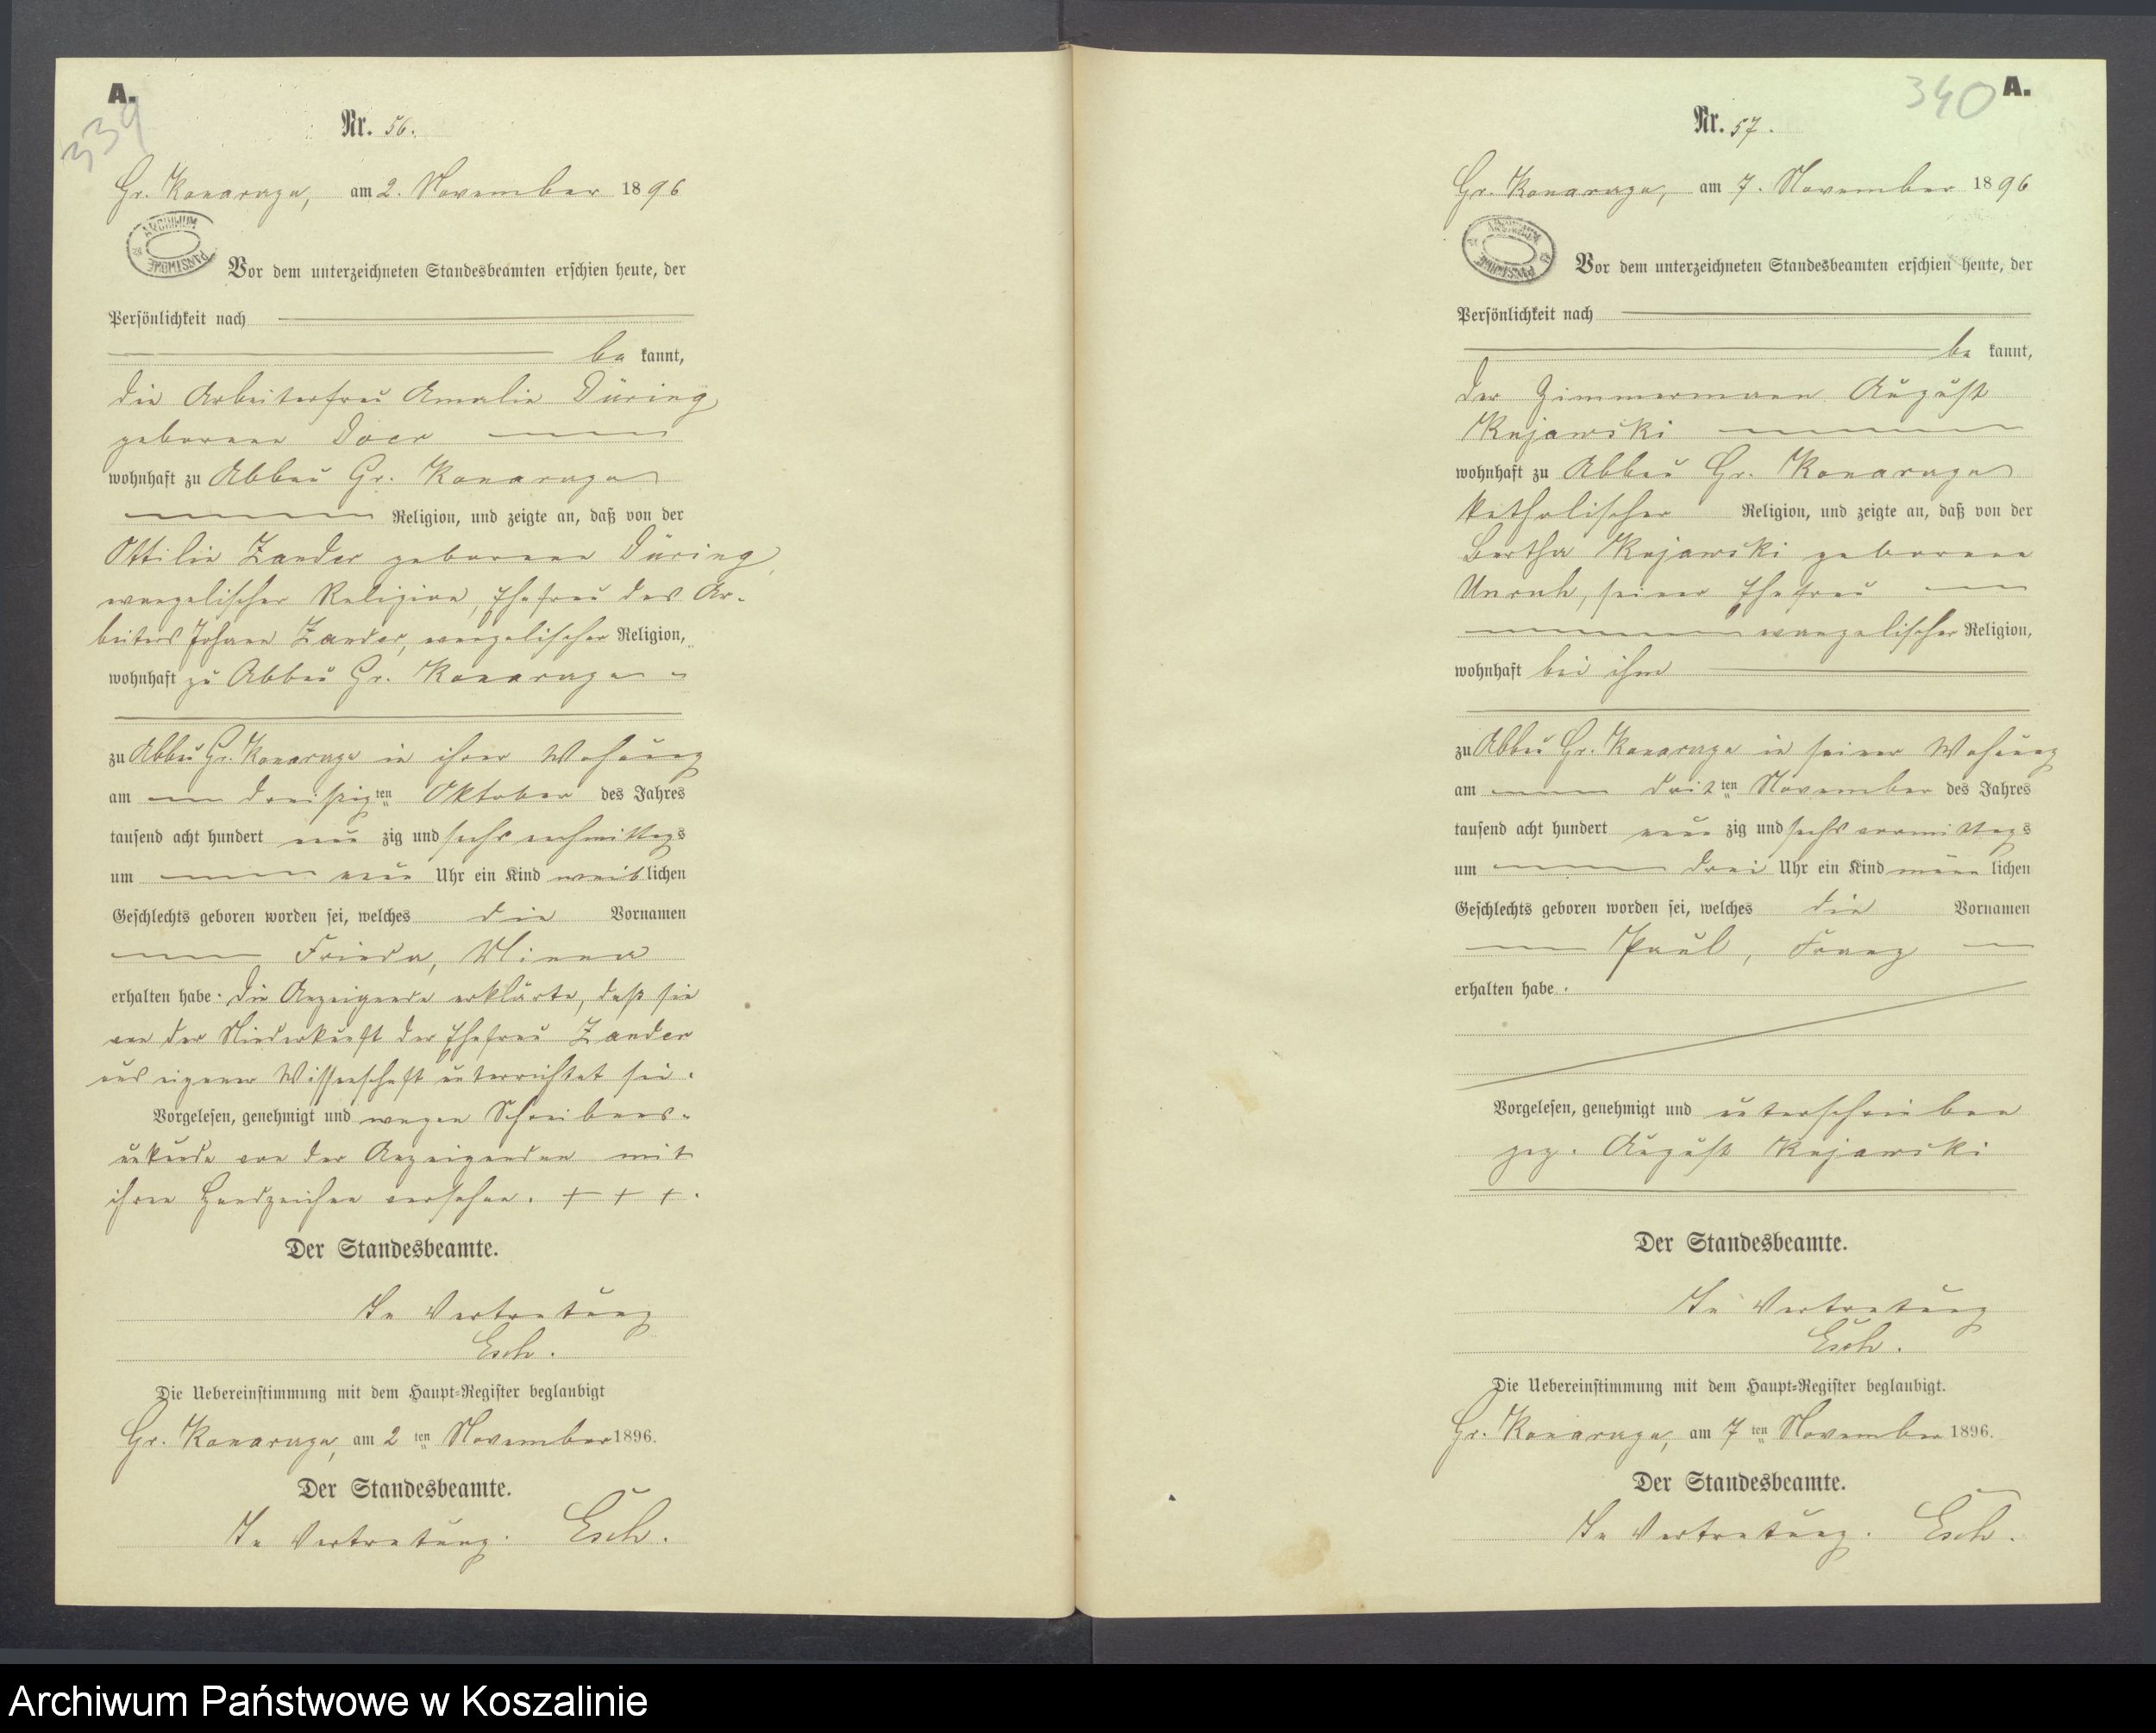 A.
339
Nr. 56.
Gr. Konarzyn, am 2. November 1896
ARCHIWUM PAŃSTWOWE
Vor dem unterzeichneten Standesbeamten erschien heute, der
Persönlichkeit nach
be kannt,
die Arbeiterfrau Amalie Düring
geborene Doer
wohnhaft zu Abbau Gr. Konarzyn
Religion, und zeigte an, daß von der
Ottilie Zander geborene Düring,
evangelischer Religion, Ehefrau des Ar-
beiters Johann Zander, evangelischer Religion,
wohnhaft zu Abbau Gr. Konarzyn
zu Abbau Gr. Konarzyn in ihrer Wohnung
am dreißigten Oktober des Jahres
tausend acht hundert neun zig und sechs nachmittags
um neun Uhr ein Kind weiblichen
Geschlechts geboren worden sei, welches die Vornamen
Frieda, Minna
erhalten habe. Die Anzeigende erklärte, daß sie
von der Niederkunft der Ehefrau Zander
aus eigener Wissenschaft unterrichtet sei.
Vorgelesen, genehmigt und wegen Schreibens-
unkunde von der Anzeigenden mit
ihren Handzeichen versehen. + + +.
Der Standesbeamte.
In Vertretung
Esch.
Die Uebereinstimmung mit dem Haupt-Register beglaubigt
Gr. Konarzyn, am 2 ten November 1896.
Der Standesbeamte.
In Vertretung. Esch.
340
A.
Nr. 57.
Gr. Konarzyn, am 7. November 1896
ARCHIWUM PAŃSTWOWE
Vor dem unterzeichneten Standesbeamten erschien heute, der
Persönlichkeit nach
be kannt,
der Zimmermann August
Kujawski
wohnhaft zu Abbau Gr. Konarzyn
katholischer Religion, und zeigte an, daß von der
Bertha Kujawski geborene
Unruh, seiner Ehefrau
evangelischer Religion,
wohnhaft bei ihm
zu Abbau Gr. Konarzyn in seiner Wohnung
am dritten November des Jahres
tausend acht hundert neun zig und sechs vormittags
um drei Uhr ein Kind männ lichen
Geschlechts geboren worden sei, welches die Vornamen
Paul, Franz
erhalten habe.
Vorgelesen, genehmigt und unterschrieben
gez. August Kujawski
Der Standesbeamte.
In Vertretung
Esch.
Die Uebereinstimmung mit dem Haupt-Register beglaubigt.
Gr. Konarzyn, am 7 ten November 1896.
Der Standesbeamte.
In Vertretung. Esch.
Archiwum Państwowe w Koszalinie